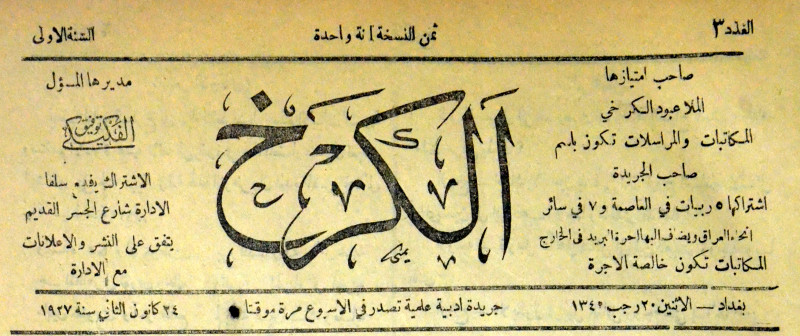 العدد ٣
ثمن النسخة آنة واحدة
السنة الاولى
صاحب امتيازها
الملا عبود الكرخي
المكاتبات والمراسلات تكون باسم
صاحب الجريدة
اشتراكها ٥ ربيات في العاصمة و ٧ في سائر
انحاء العراق ويضاف اليها اجرة البريد في الخارج
المكاتبات تكون خالصة الاجرة
الكرخ
يمنى
مديرها المسؤل
توفيق
الفكيكي
الاشتراك يدفع سلفا
الادارة شارع الجسر القديم
يتفق على النشر والاعلانات
مع الادارة
بغداد — الاثنين ٢٠ رجب ١٣٤٥
جريدة ادبية علمية تصدر في الاسبوع مرة موقتا
٢٤ كانون الثاني سنة ١٩٢٧